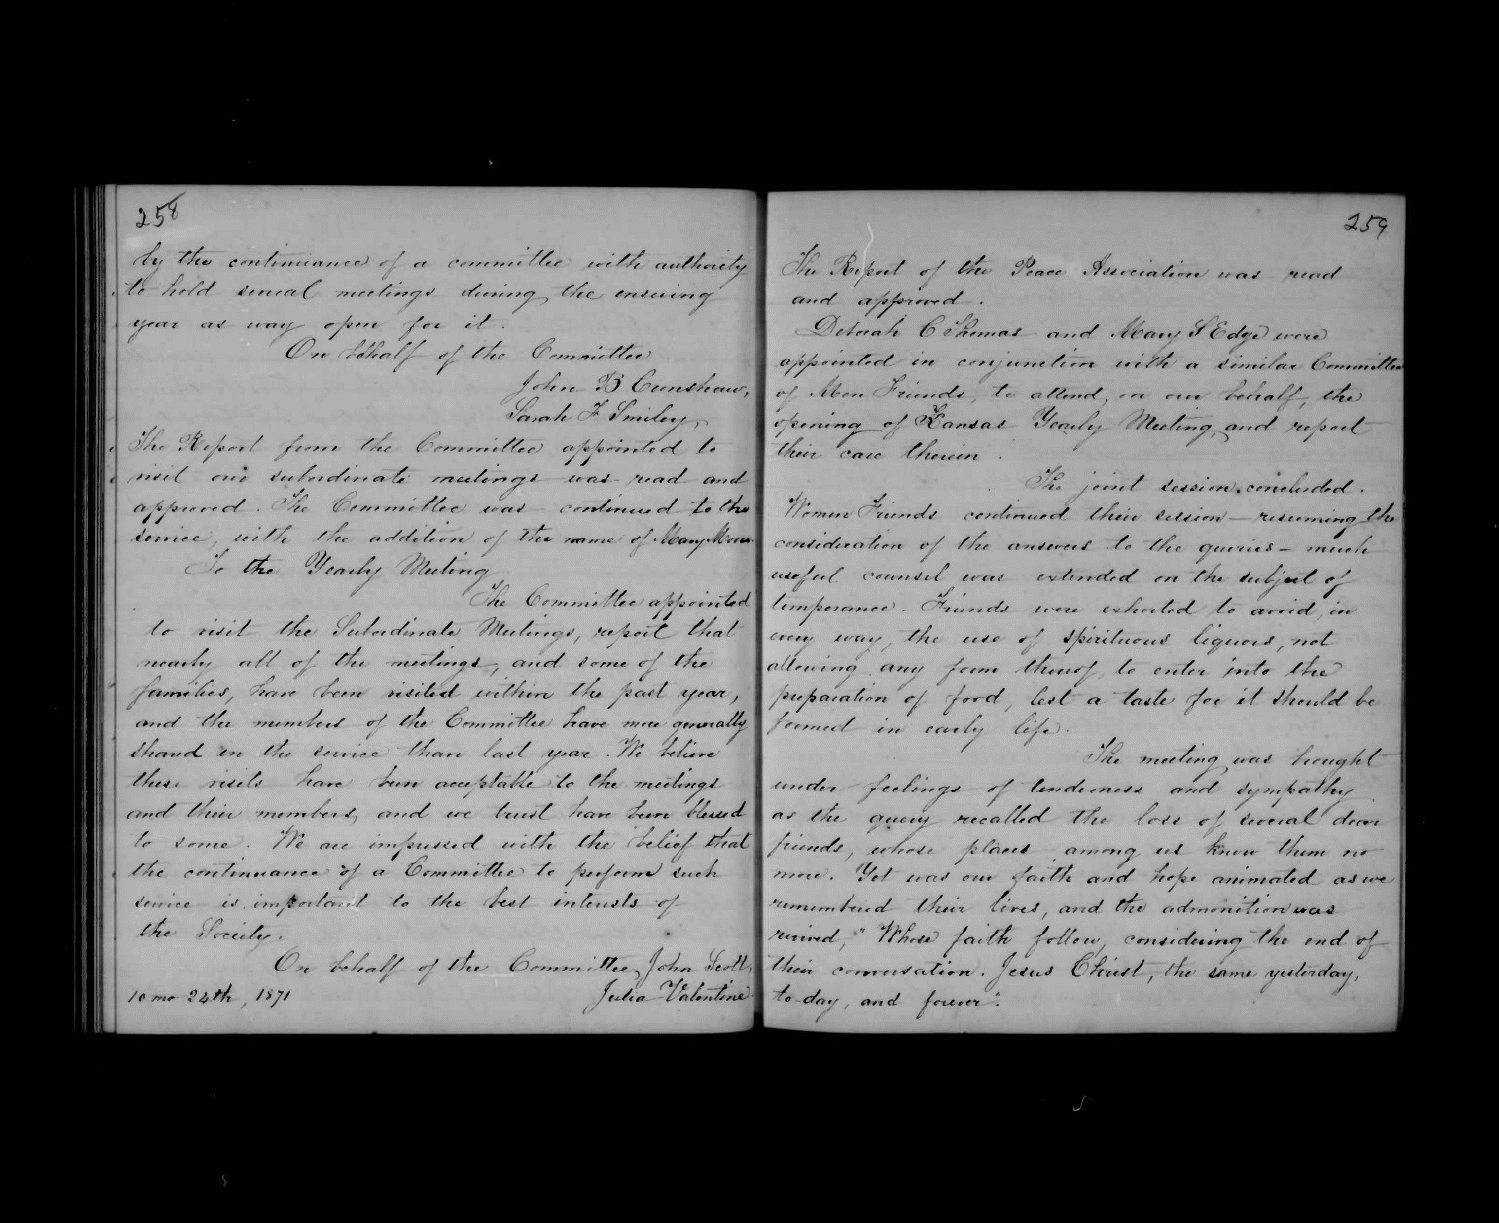 258
by the continuance of a committee with authority
to hold serval meetings during the ensuing
year as way open for it.
On behalf of the Committee
John B Crenshaw,
Sarah F Smiley,
The Report from the Committee appointed to
visit our subordinate meetings was read and
approved. The Committee was continued to the
service, with the addition of the name of Mary Moore
To the Yearly Meeting
The Committee appointed
to visit the Subordinate Meetings, report that
nearly all of the meetings, and some of the
families, have been visited within the past year,
and the members of the Committee have more generally
shared in the service than last year. We believe
these visits have been acceptable to the meetings
and their members, and we trust have been blessed
to some. We are impressed with the belief that
the continuance of a Committee to perform such
service is important to the best interests of
the Society.
On behalf of the Committee, John Scott,
10 mo 24th, 1871 Julia Valentine
259
The Report of the Peace Association was read
and approved.
Deborah C Thomas and Mary S Edge were
appointed in conjunction with a similar Committee
of Men Friends, to attend, on our behalf, the
opening of Kansas Yearly Meeting, and report
their care therein.
The joint session concluded.
Women Friends continued their session — resuming the
consideration of the answers to the queries — much
useful counsel was extended on the subject of
temperance. Friends were exhorted to avoid, in
every way, the use of spirituous liquors, not
allowing any form thereof, to enter into the
preparation of food, lest a taste for it should be
formed in early life.
The meeting was brought
under feelings of tenderness and sympathy
as the query recalled the loss of several dear
friends, whose places among us know them no
more. Yet was our faith and hope animated as we
remembered their lives, and the admonition was
revived, "Whose faith follow, considering the end of
their conversation. Jesus Christ, the same yesterday,
to-day, and forever".